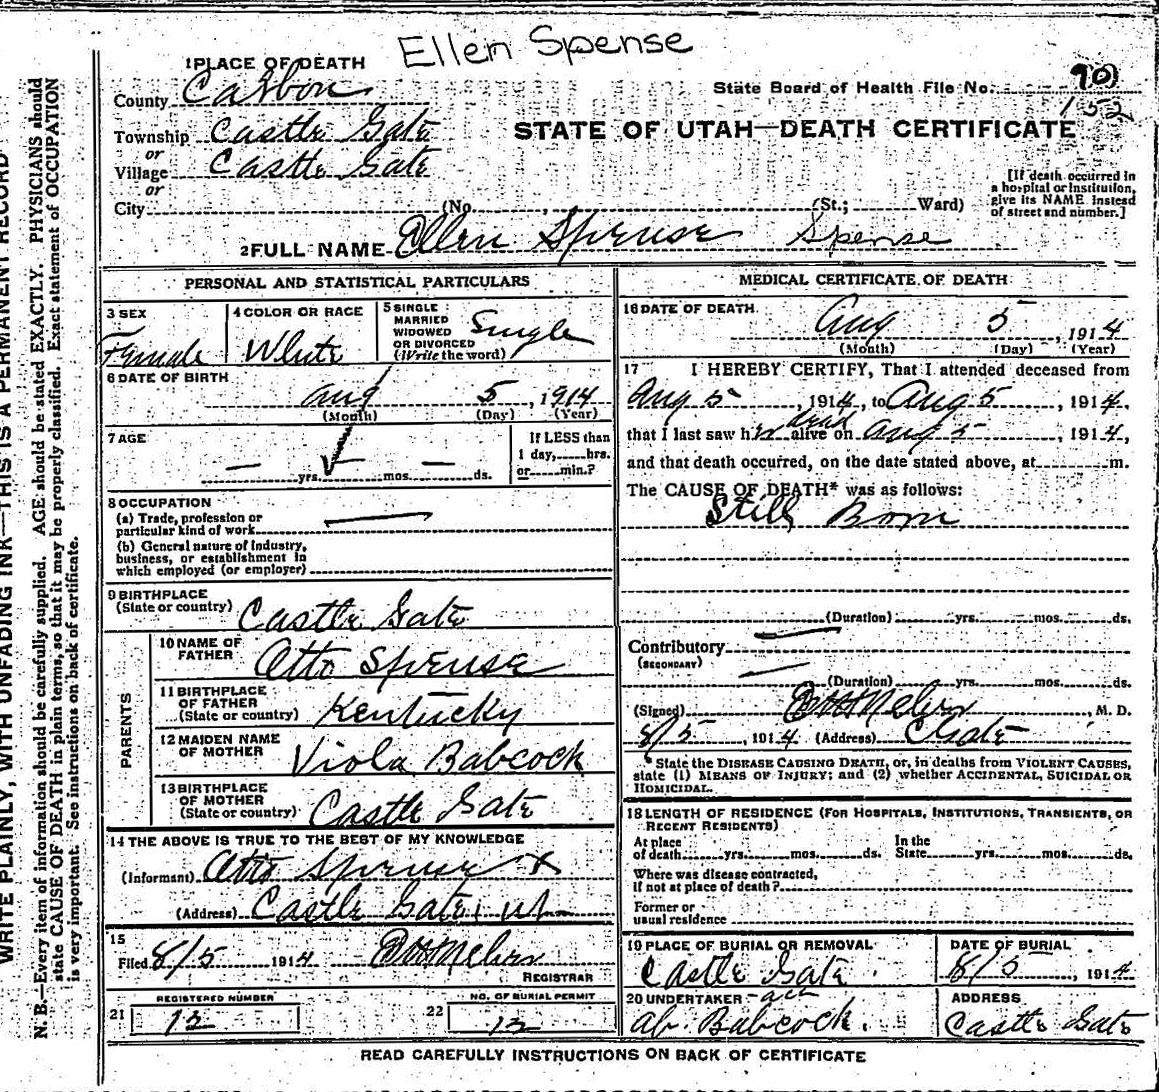 Ellen Spense
1 PLACE OF DEATH
County Carbon
State Board of Health File No. 90
152
Township Castle Gate
STATE OF UTAH—DEATH CERTIFICATE
or
Village Castle Gate
or
City (No. , (St.; Ward)
[If death occurred in
a hospital or institution,
give its NAME instead
of street and number.]
2 FULL NAME Ellen Spense Spense
PERSONAL AND STATISTICAL PARTICULARS
3 SEX
Female
4 COLOR OR RACE
White
5 SINGLE
MARRIED
WIDOWED
OR DIVORCED
(Write the word)
Single
6 DATE OF BIRTH
Aug 5, 1914
(Month) (Day) (Year)
7 AGE
— yrs. — mos. — ds.
If LESS than
1 day, hrs.
or min.?
8 OCCUPATION
(a) Trade, profession or
particular kind of work
(b) General nature of industry,
business, or establishment in
which employed (or employer)
9 BIRTHPLACE
(State or country) Castle Gate
PARENTS
10 NAME OF
FATHER Otto Spense
11 BIRTHPLACE
OF FATHER
(State or country) Kentucky
12 MAIDEN NAME
OF MOTHER Viola Babcock
13 BIRTHPLACE
OF MOTHER
(State or country) Castle Gate
14 THE ABOVE IS TRUE TO THE BEST OF MY KNOWLEDGE
(Informant) Otto Spense X
(Address) Castle Gate, ut
15
Filed 8/5 1914
REGISTRAR
REGISTERED NUMBER
21 12
NO. OF BURIAL PERMIT
22 12
MEDICAL CERTIFICATE OF DEATH
16 DATE OF DEATH
Aug 5, 1914
(Month) (Day) (Year)
17 I HEREBY CERTIFY, That I attended deceased from
Aug 5, 1914, to Aug 5, 1914,
dead
that I last saw her alive on Aug 5, 1914,
and that death occurred, on the date stated above, at m.
The CAUSE OF DEATH* was as follows:
Still Born
(Duration) yrs. mos. ds.
Contributory
(SECONDARY)
(Duration) yrs. mos. ds.
(Signed) , M. D.
8/5, 1914 (Address) C Gate
* State the DISEASE CAUSING DEATH, or, in deaths from VIOLENT CAUSES,
state (1) MEANS OF INJURY; and (2) whether ACCIDENTAL, SUICIDAL OR
HOMICIDAL.
18 LENGTH OF RESIDENCE (FOR HOSPITALS, INSTITUTIONS, TRANSIENTS, OR
RECENT RESIDENTS)
At place
of death yrs. mos. ds.
In the
State yrs. mos. ds.
Where was disease contracted,
if not at place of death?
Former or
usual residence
19 PLACE OF BURIAL OR REMOVAL
Castle Gate.
DATE OF BURIAL
8/5, 1914
20 UNDERTAKER
Ab Babcock.
ADDRESS
Castle Gate
READ CAREFULLY INSTRUCTIONS ON BACK OF CERTIFICATE
WRITE PLAINLY, WITH UNFADING INK—THIS IS A PERMANENT RECORD
N. B.—Every item of information should be carefully supplied. AGE should be stated EXACTLY. PHYSICIANS should
state CAUSE OF DEATH in plain terms, so that it may be properly classified. Exact statement of OCCUPATION
is very important. See instructions on back of certificate.